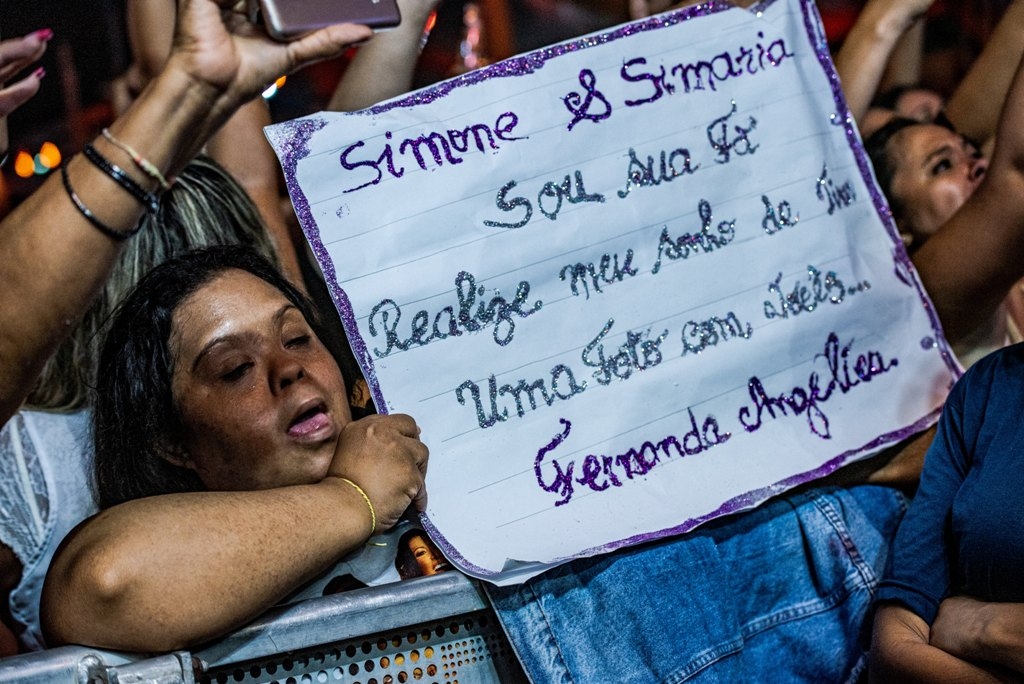 Simone & Simaria
Sou sua Fã
Realize meu sonho de Tirar
Uma Foto com vocês...
Fernanda Angélica.